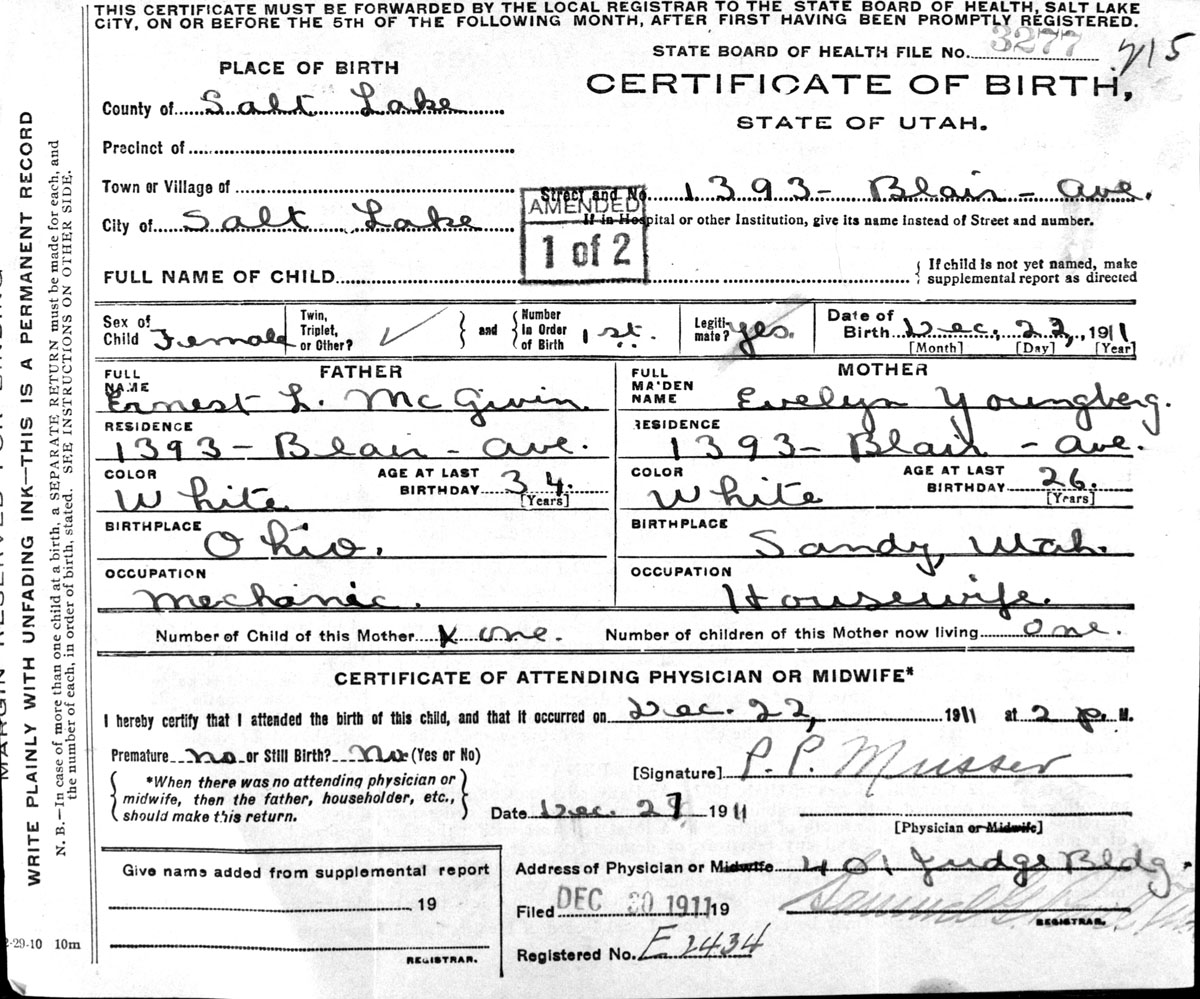 THIS CERTIFICATE MUST BE FORWARDED BY THE LOCAL REGISTRAR TO THE STATE BOARD OF HEALTH, SALT LAKE
CITY, ON OR BEFORE THE 5TH OF THE FOLLOWING MONTH, AFTER FIRST HAVING BEEN PROMPTLY REGISTERED.
STATE BOARD OF HEALTH FILE No. 3277 715
PLACE OF BIRTH
CERTIFICATE OF BIRTH,
STATE OF UTAH.
County of Salt Lake
Precinct of
Town or Village of
Street and No 1393- Blair - Ave.
City of Salt Lake
If in Hospital or other Institution, give its name instead of Street and number.
AMENDED
1 of 2
FULL NAME OF CHILD
{ If child is not yet named, make
supplemental report as directed
Sex of Child Female
Twin, Triplet, or Other? ✓ } and { Number In Order of Birth 1st.
Legitimate? yes.
Date of Birth Dec. 22, 1911
[Month] [Day] [Year]
FATHER
FULL NAME Ernest L. McGivin.
RESIDENCE
1393- Blair - Ave.
COLOR White
AGE AT LAST BIRTHDAY 34. [Years]
BIRTHPLACE
Ohio.
OCCUPATION
Mechanic.
MOTHER
FULL MAIDEN NAME Evelyn Youngberg.
RESIDENCE
1393- Blair - Ave.
COLOR White
AGE AT LAST BIRTHDAY 26. [Years]
BIRTHPLACE
Sandy, Utah.
OCCUPATION
Housewife.
Number of Child of this Mother one. Number of children of this Mother now living one.
CERTIFICATE OF ATTENDING PHYSICIAN OR MIDWIFE*
I hereby certify that I attended the birth of this child, and that it occurred on Dec. 22, 1911 at 2 p. M.
Premature no or Still Birth? No (Yes or No)
[Signature] P. P. Musser
{ *When there was no attending physician or
midwife, then the father, householder, etc.,
should make this return. }
Date Dec. 27 1911
[Physician or Midwife]
Address of Physician or Midwife 401 Judge Bldg.
Give name added from supplemental report
19
REGISTRAR.
Filed DEC 30 1911 19
REGISTRAR.
Registered No. E 2434
2-29-10 10m
MARGIN RESERVED FOR BINDING
WRITE PLAINLY WITH UNFADING INK—THIS IS A PERMANENT RECORD
N. B.—In case of more than one child at a birth, a SEPARATE RETURN must be made for each, and
the number of each, in order of birth, stated. SEE INSTRUCTIONS ON OTHER SIDE.